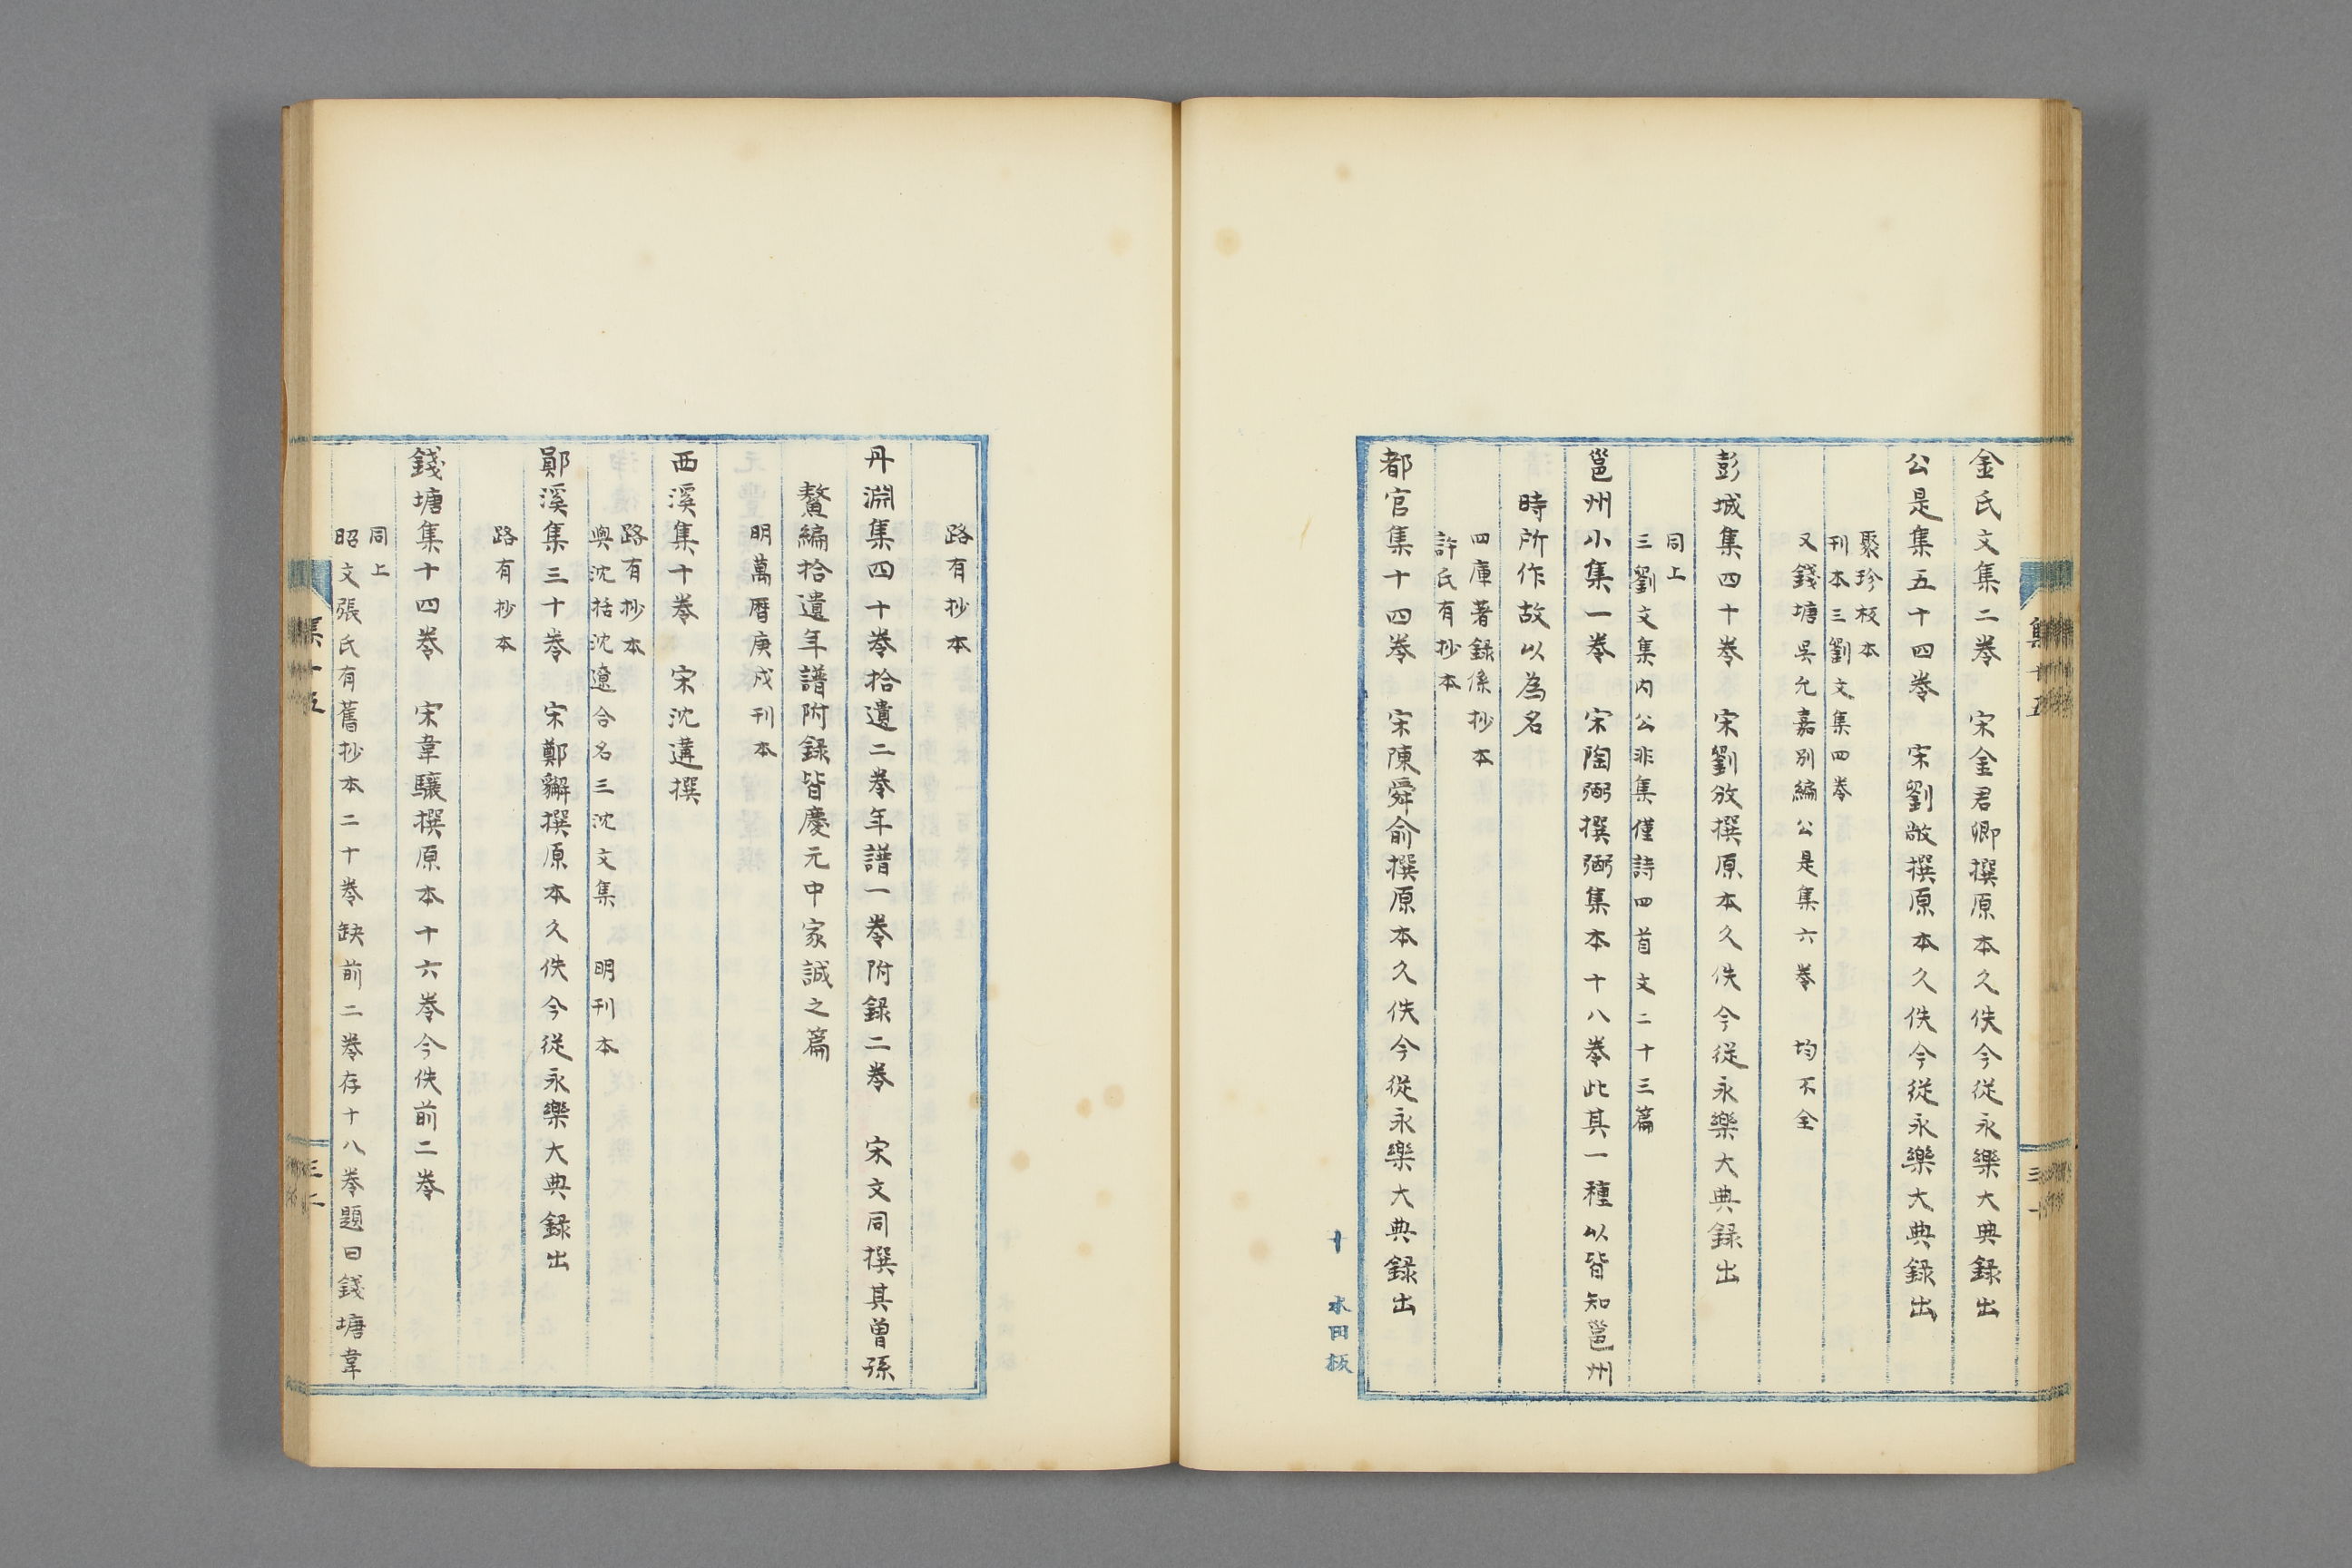 金氏文集二卷　宋金君卿撰原本久佚今從永樂大典録出
公是集五十四卷　宋劉敞撰原本久佚今從永樂大典録出
聚珍板本
刊本三劉文集四卷
又錢塘吳允嘉別編公是集六卷　均不全
彭城集四十卷　宋劉攽撰原本久佚今從永樂大典録出
同上
三劉文集内公非集僅詩四首文二十三篇
邕州小集一卷　宋陶弼撰弼集本十八卷此其一種以皆知邕州
時所作故以為名
四庫著録係抄本
許氏有抄本
都官集十四卷　宋陳舜俞撰原本久佚今從永樂大典録出
集十五
三十
十
水田板
路有抄本
丹淵集四十卷拾遺二卷年譜一卷附録二卷　宋文同撰其曾孫
鷔編拾遺年譜附録皆慶元中家誠之篇
明萬曆庚戍刊本
西溪集十卷　宋沈遘撰
路有抄本
與沈括沈遼合名三沈文集　明刊本
鄖溪集三十卷　宋鄭獬撰原本久佚今從永樂大典録出
路有抄本
錢塘集十四卷　宋韋驤撰原本十六卷今佚前二卷
同上
昭文張氏有舊抄本二十卷缺前二卷存十八卷題曰錢塘韋
集十五